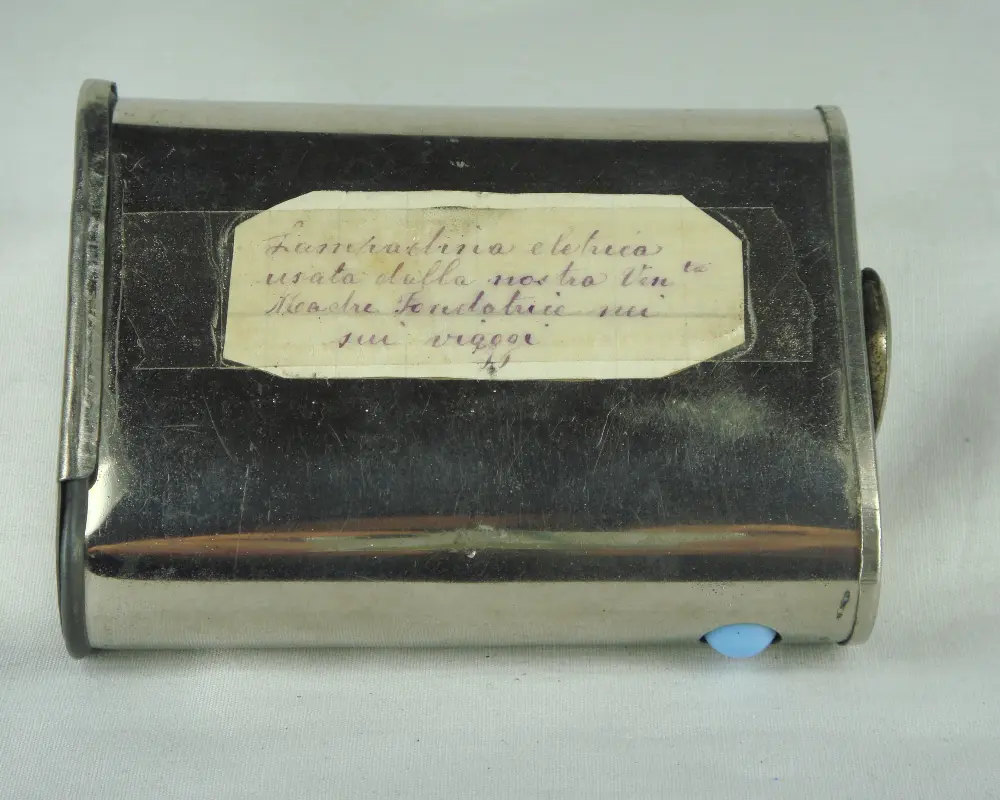 Lampadina eletrica
usata dalla nostra Ven^ta
Madre Fondatrice nei
sui viaggi